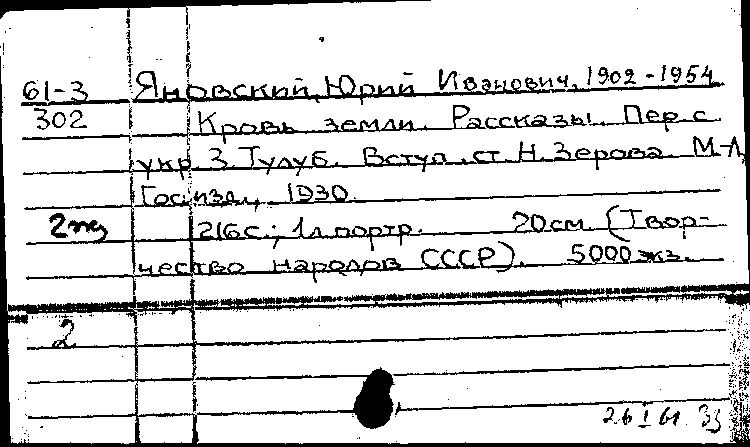 61-3 Яновский, Юрий Иванович, 1902-1954
302 Кровь земли. Рассказы. Пер. с
укр. З. Тулуб. Вступ. ст. Н. Зерова. М-Л,
Госизд., 1930.
2 экз 216 с.; 1 л. портр. 20 см. (Твор-
чество народов СССР). 5000 экз.
2
26 I 61.